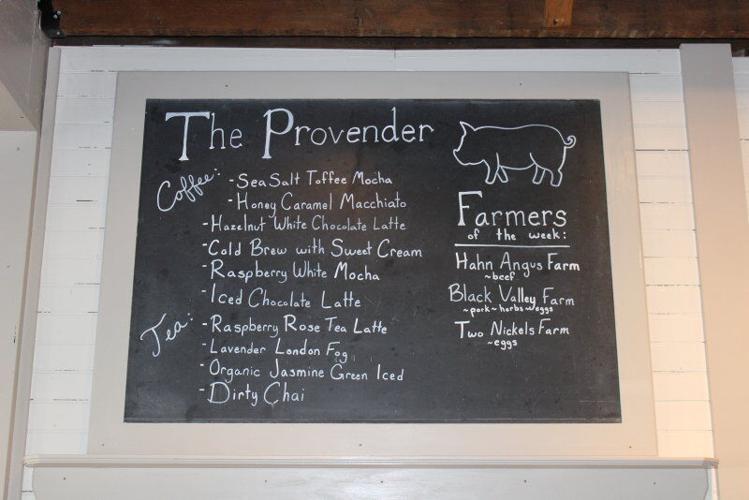 The Provender
Coffee:
-Sea Salt Toffee Mocha
-Honey Caramel Macchiato
-Hazelnut White Chocolate Latte
-Cold Brew with Sweet Cream
-Raspberry White Mocha
-Iced Chocolate Latte
Tea:
-Raspberry Rose Tea Latte
-Lavender London Fog
-Organic Jasmine Green Iced
-Dirty Chai
Farmers
of the week:
Hahn Angus Farm
~beef
Black Valley Farm
~pork~herbs~eggs
Two Nickels Farm
~eggs